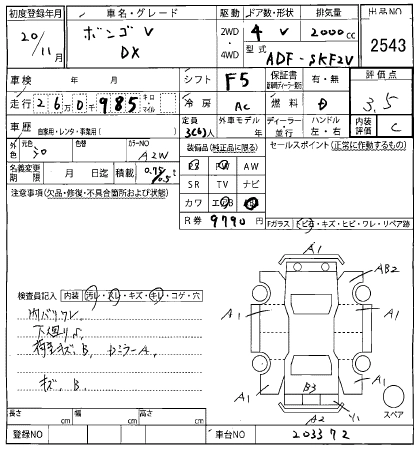 初度登録年月
車名・グレード
駆動
ドア数・形状
排気量
出品NO
20/11月
ボンゴ V
DX
2WD
4WD
4 V
2000 cc
型式
ADF-SKF2V
2543
車検 年 月
シフト
F5
保証書
有・無
評価点
3.5
走行
26万0千985
キロ
マイル
冷房
AC
燃料
D
車歴
自家用・レンタ・事業用( )
定員
3(6)人
外車モデル
年
ディーラー・並行
ハンドル
左・右
内装評価
C
外色
元色
色替
カラーNO
A2W
装備品(純正品に限る)
セールスポイント(正常に作動するもの)
名義変更期限
月 日迄
積載
t
PS PW AW
SR TV ナビ
カワ エアB
注意事項(欠品・修復・不具合箇所および状態)
R券
9790 円
Fガラス
ヒビ・キズ・ヒビ・ワレ・リペア跡
A1
AB2
A1
A1
A1
A1
B3
A2
Y1
検査員記入
内装
汚レ・スレ・キズ・キレ・コゲ・穴
内バリワレ
荷室キズ、B、
キズ、B、
スペア
長さ cm
幅 cm
高さ cm
登録NO
車台NO
203372